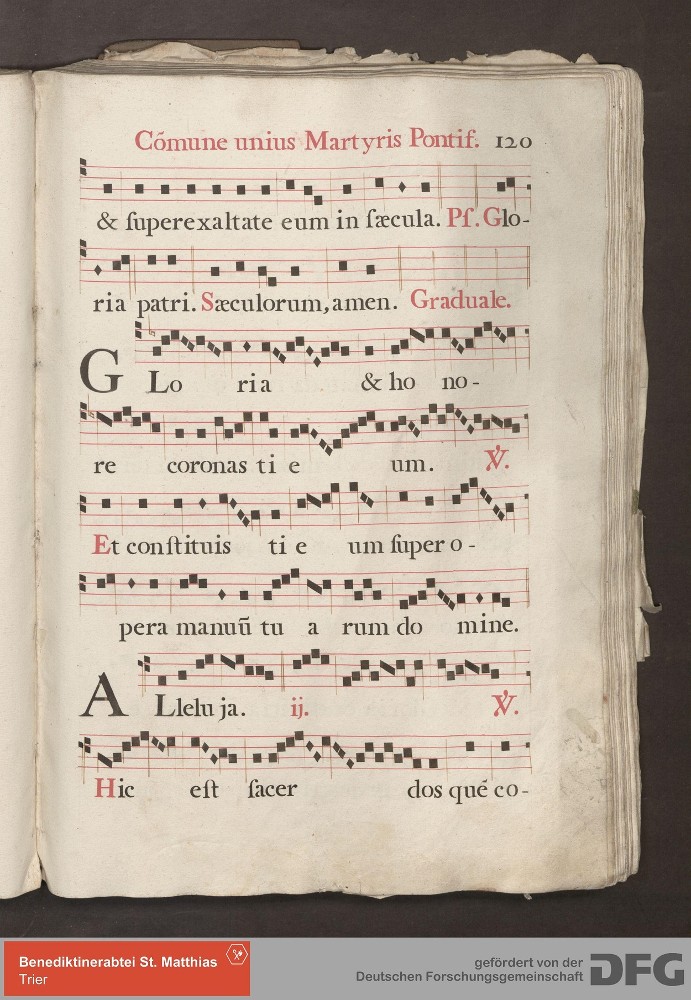 Cõmune unius Martyris Pontif. 120
& ſuperexaltate eum in ſæcula. Pſ. Glo-
ria patri. Sæculorum, amen. Graduale.
GLo ria & ho no-
re coronas ti e um. ℣.
Et conſtituis ti e um ſuper o-
pera manuũ tu a rum do mine.
ALlelu ja. ij. ℣.
Hic eſt ſacer dos qué co-
Benediktinerabtei St. Matthias
Trier
gefördert von der
Deutschen Forschungsgemeinschaft DFG